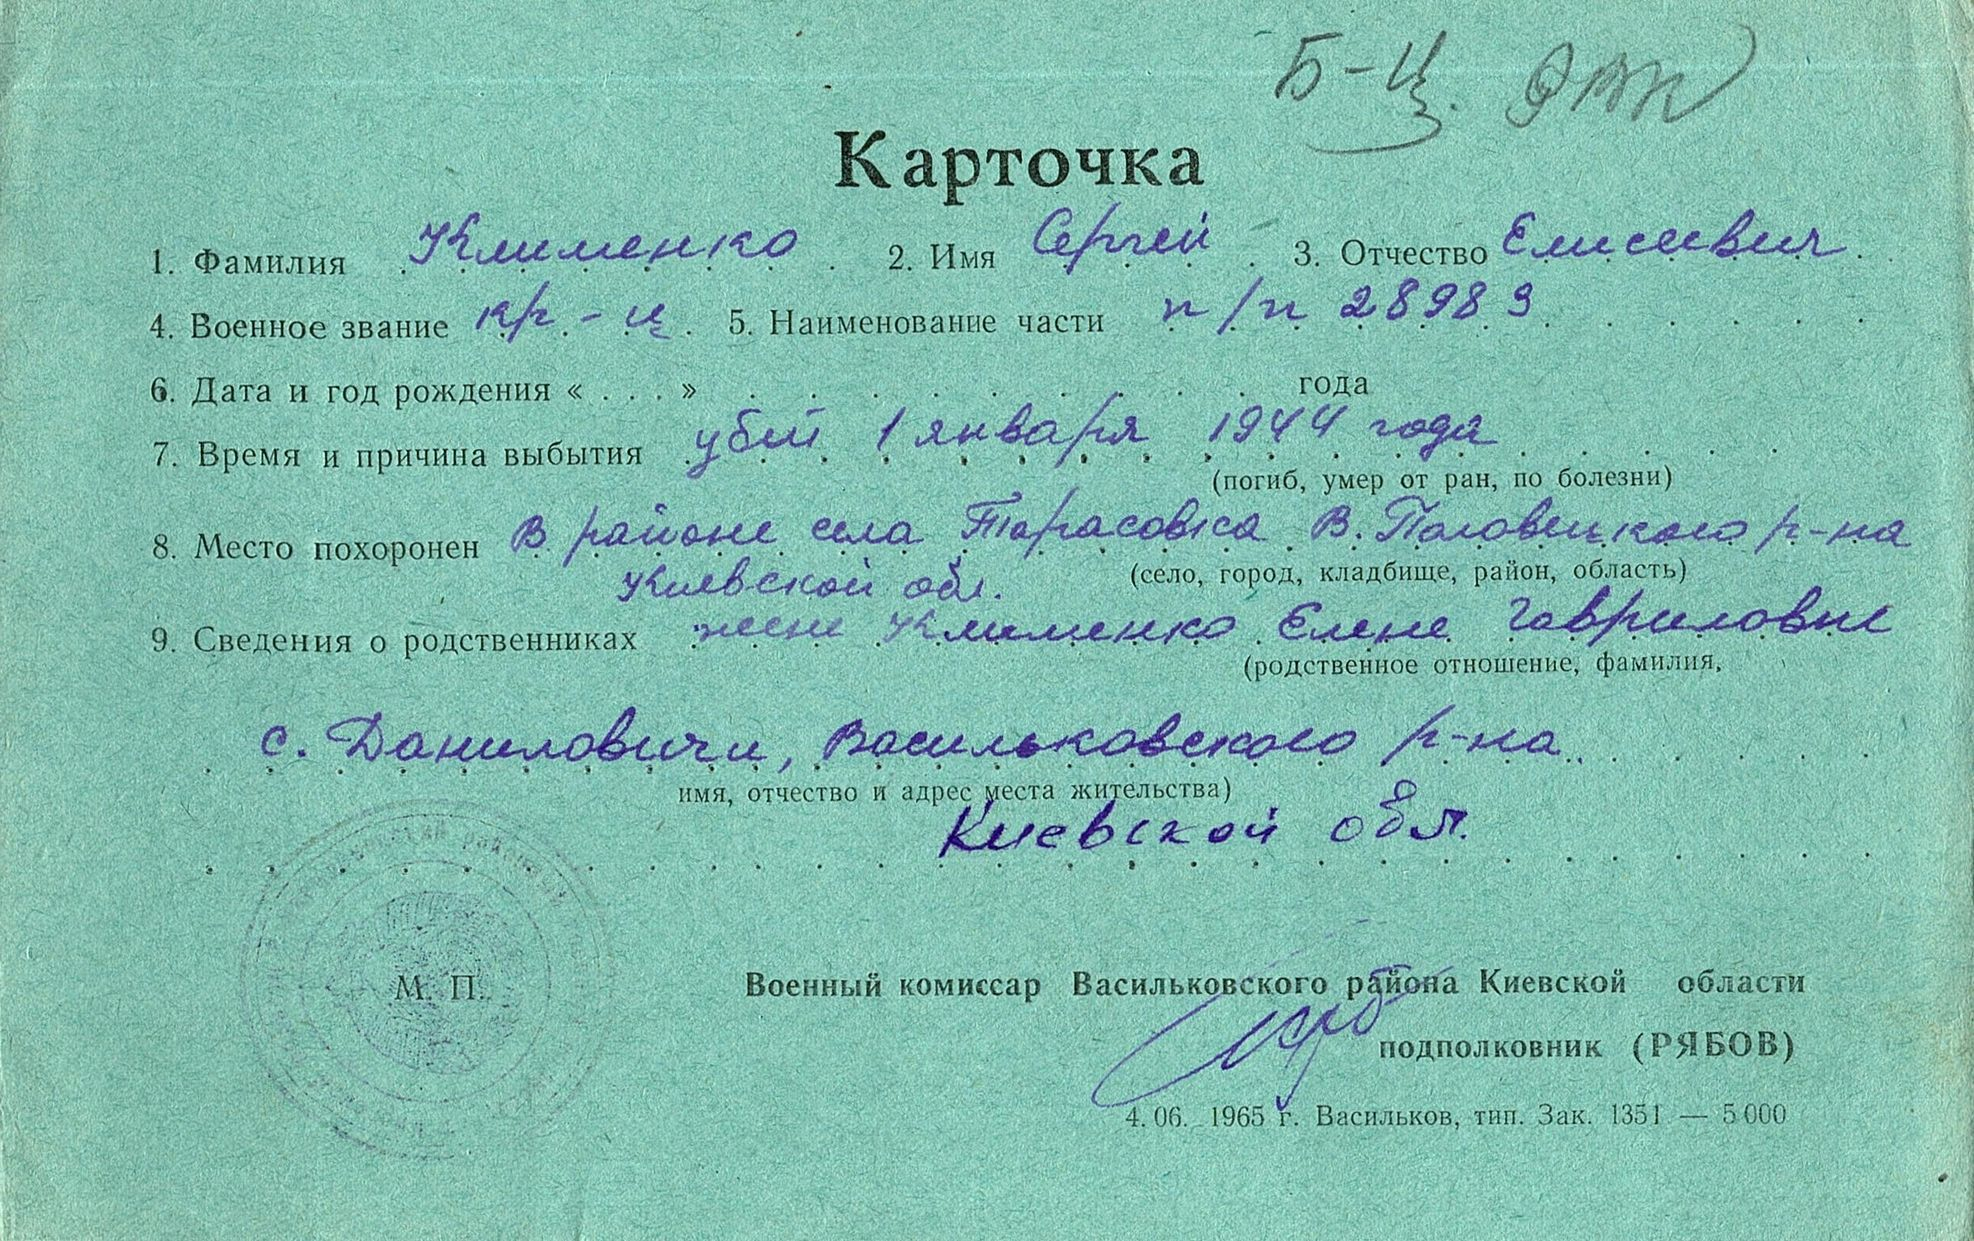 Б-Ц. РВК
Карточка
1. Фамилия Клименко 2. Имя Сергей 3. Отчество Елисеевич
4. Военное звание кр-ц 5. Наименование части п/п 28989
6. Дата и год рождения « . . . » . . . . . . . . . года
7. Время и причина выбытия убит 1 января 1944 года
(погиб, умер от ран, по болезни)
8. Место похоронен В районе села Тарасовка В. Половецкого р-на
Киевской обл.
(село, город, кладбище, район, область)
9. Сведения о родственниках жене Клименко Елене Гавриловне
(родственное отношение, фамилия,
с. Даниловичи, Васильковского р-на
имя, отчество и адрес места жительства)
Киевской обл.
М. П.
Военный комиссар Васильковского района Киевской области
подполковник (РЯБОВ)
4. 06. 1965 г. Васильков, тип. Зак. 1351 — 5 000